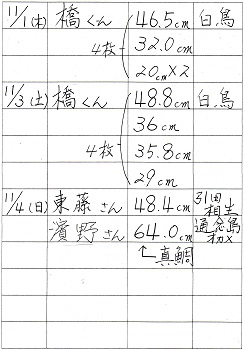 11/1(木) 橋くん 46.5cm 白鳥
4枚 32.0cm
20cm×2
11/3(土) 橋くん 48.8cm 白鳥
36cm
4枚 35.8cm
29cm
11/4(日) 東藤さん 48.4cm 引田 相生
濱野さん 64.0cm 通念島
↑真鯛